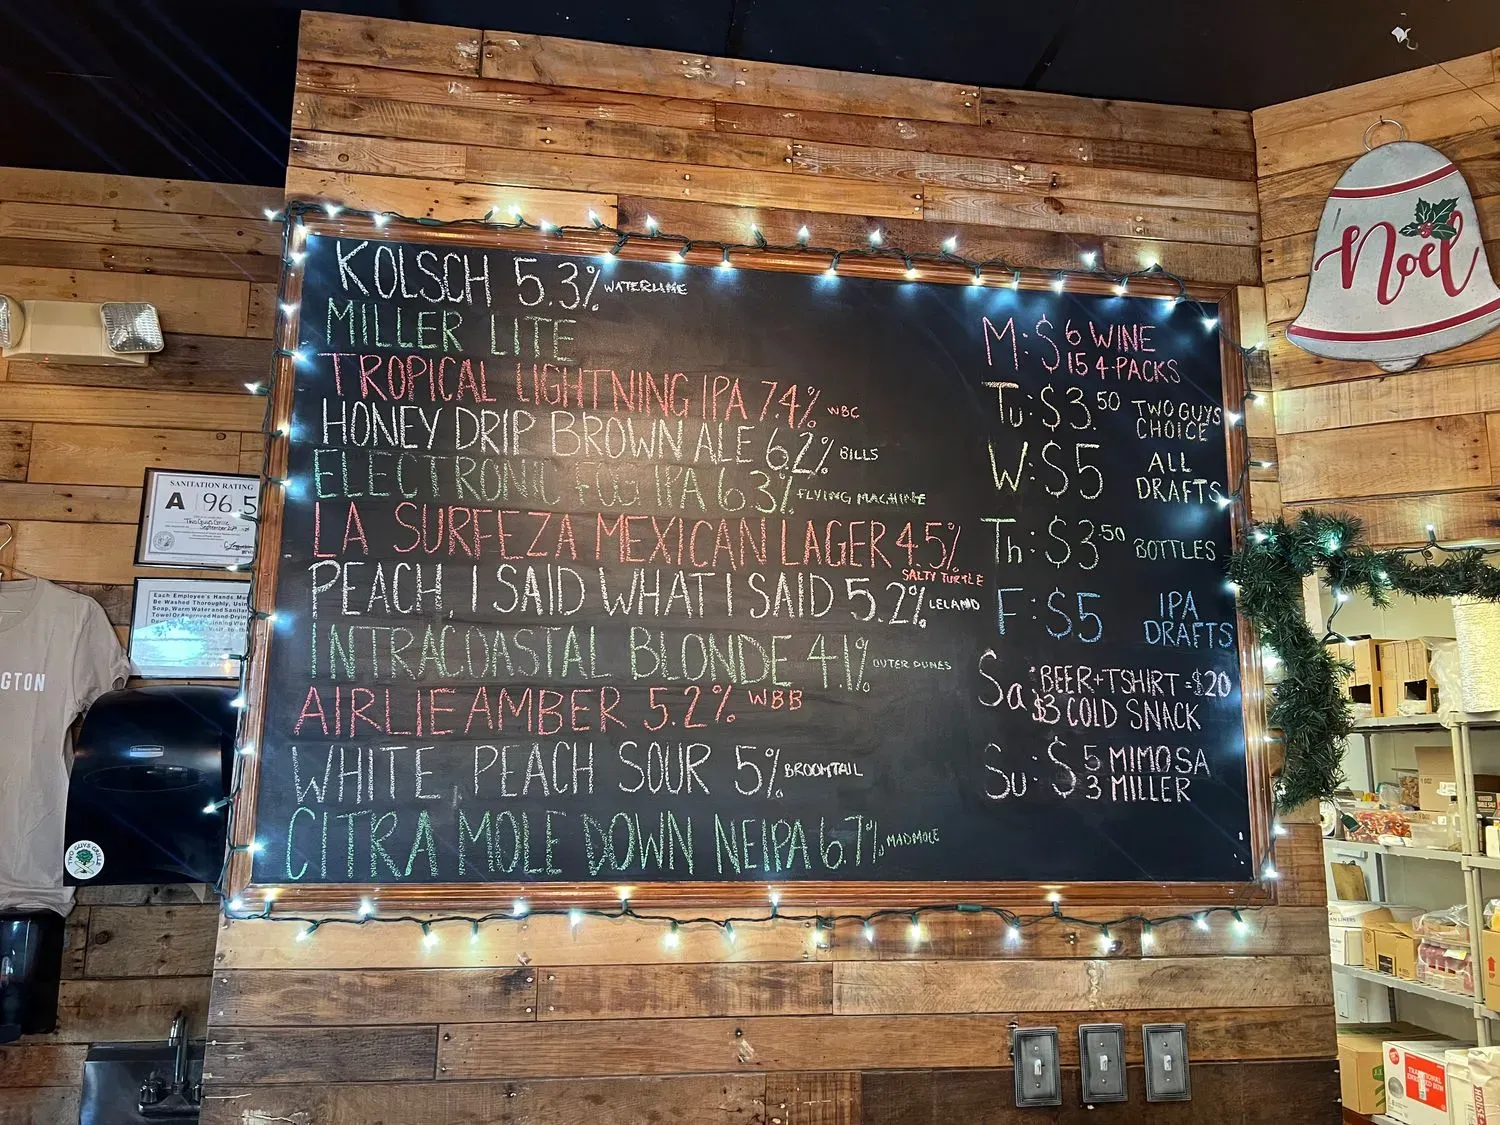 KOLSCH 5.3% WATERLINE
MILLER LITE
TROPICAL LIGHTNING IPA 7.4% WBC
HONEY DRIP BROWN ALE 6.2% BILLS
ELECTRONIC FOG IPA 6.3% FLYING MACHINE
LA SURFEZA MEXICAN LAGER 4.5%
SALTY TURTLE
PEACH, I SAID WHAT I SAID 5.2% LELAND
INTRACOASTAL BLONDE 4.1% OUTER DUNES
AIRLIE AMBER 5.2% WBB
WHITE PEACH SOUR 5% BROOMTAIL
CITRA MOLE DOWN NEIPA 6.7% MADMOLE
M: $6 WINE
15 4-PACKS
Tu: $3.50 TWO GUYS
CHOICE
W: $5 ALL
DRAFTS
Th: $3.50 BOTTLES
F: $5 IPA
DRAFTS
Sa: BEER + TSHIRT = $20
$3 COLD SNACK
Su: $5 MIMOSA
3 MILLER
Noel
SANITATION RATING
A 96.5
Two Guys Grille
Each Employee's Hands Must
Be Washed Thoroughly, Using
Soap, Warm Water and
GTON
TWO GUYS GRILLE